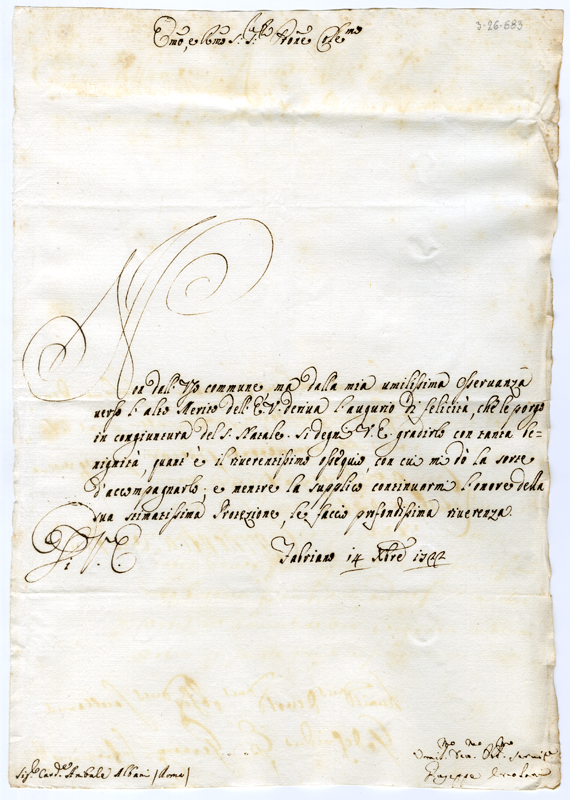 3-26-683
Emo, e Rmo Sig. Sig. Prone Colmo
Non dall'Uso commune, mà dalla mia umilissima Osservanza
verso l'alto Merito dell'E.V. deriva l'augurio di felicità, che le porgo
in congiuntura del S. Natale. Si degni V.E. gradirlo con tanta be=
nignità, quant'è il riverentissimo ossequio, con cui mi dò la sorte
d'accompagnarlo, e mentre la supplico continuarmi l'onore della
sua stimatissima Protezione, le faccio profondissima riverenza
Di V.E.
Fabriano 14 Xbre 1722
Umo Devmo Obmo Servit.e
Giuseppe
Sig.r Card.e Anibale Albani (Roma)